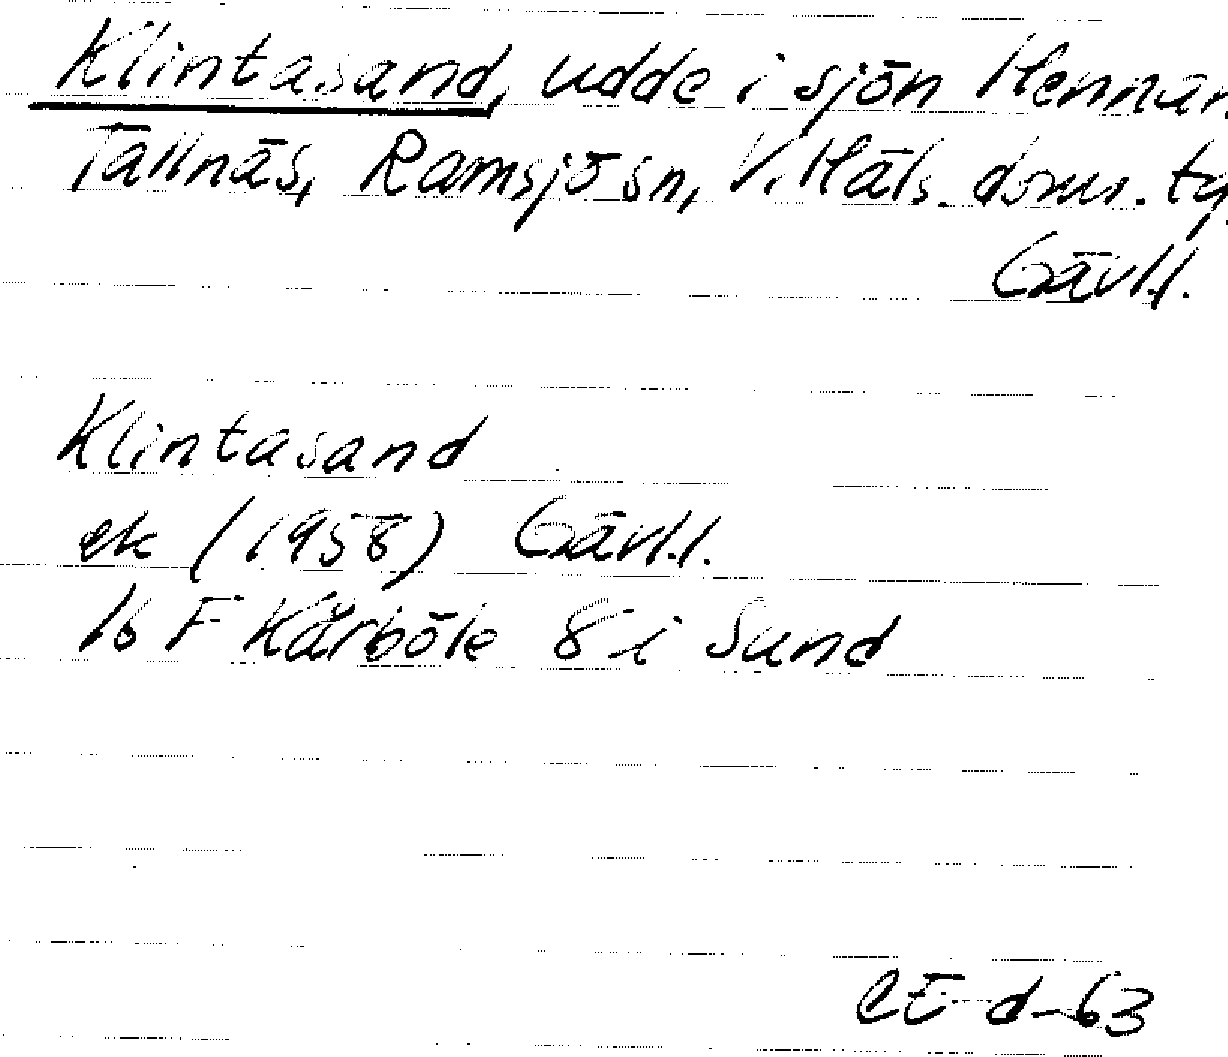 Klintasand, udde i sjön Hennan
Tallnäs, Ramsjö sn, V. Häls. doms. tg.
Gävl.l.
Klintasand
ek (1958) Gävl.l.
16 F Kårböle 8 i Sund